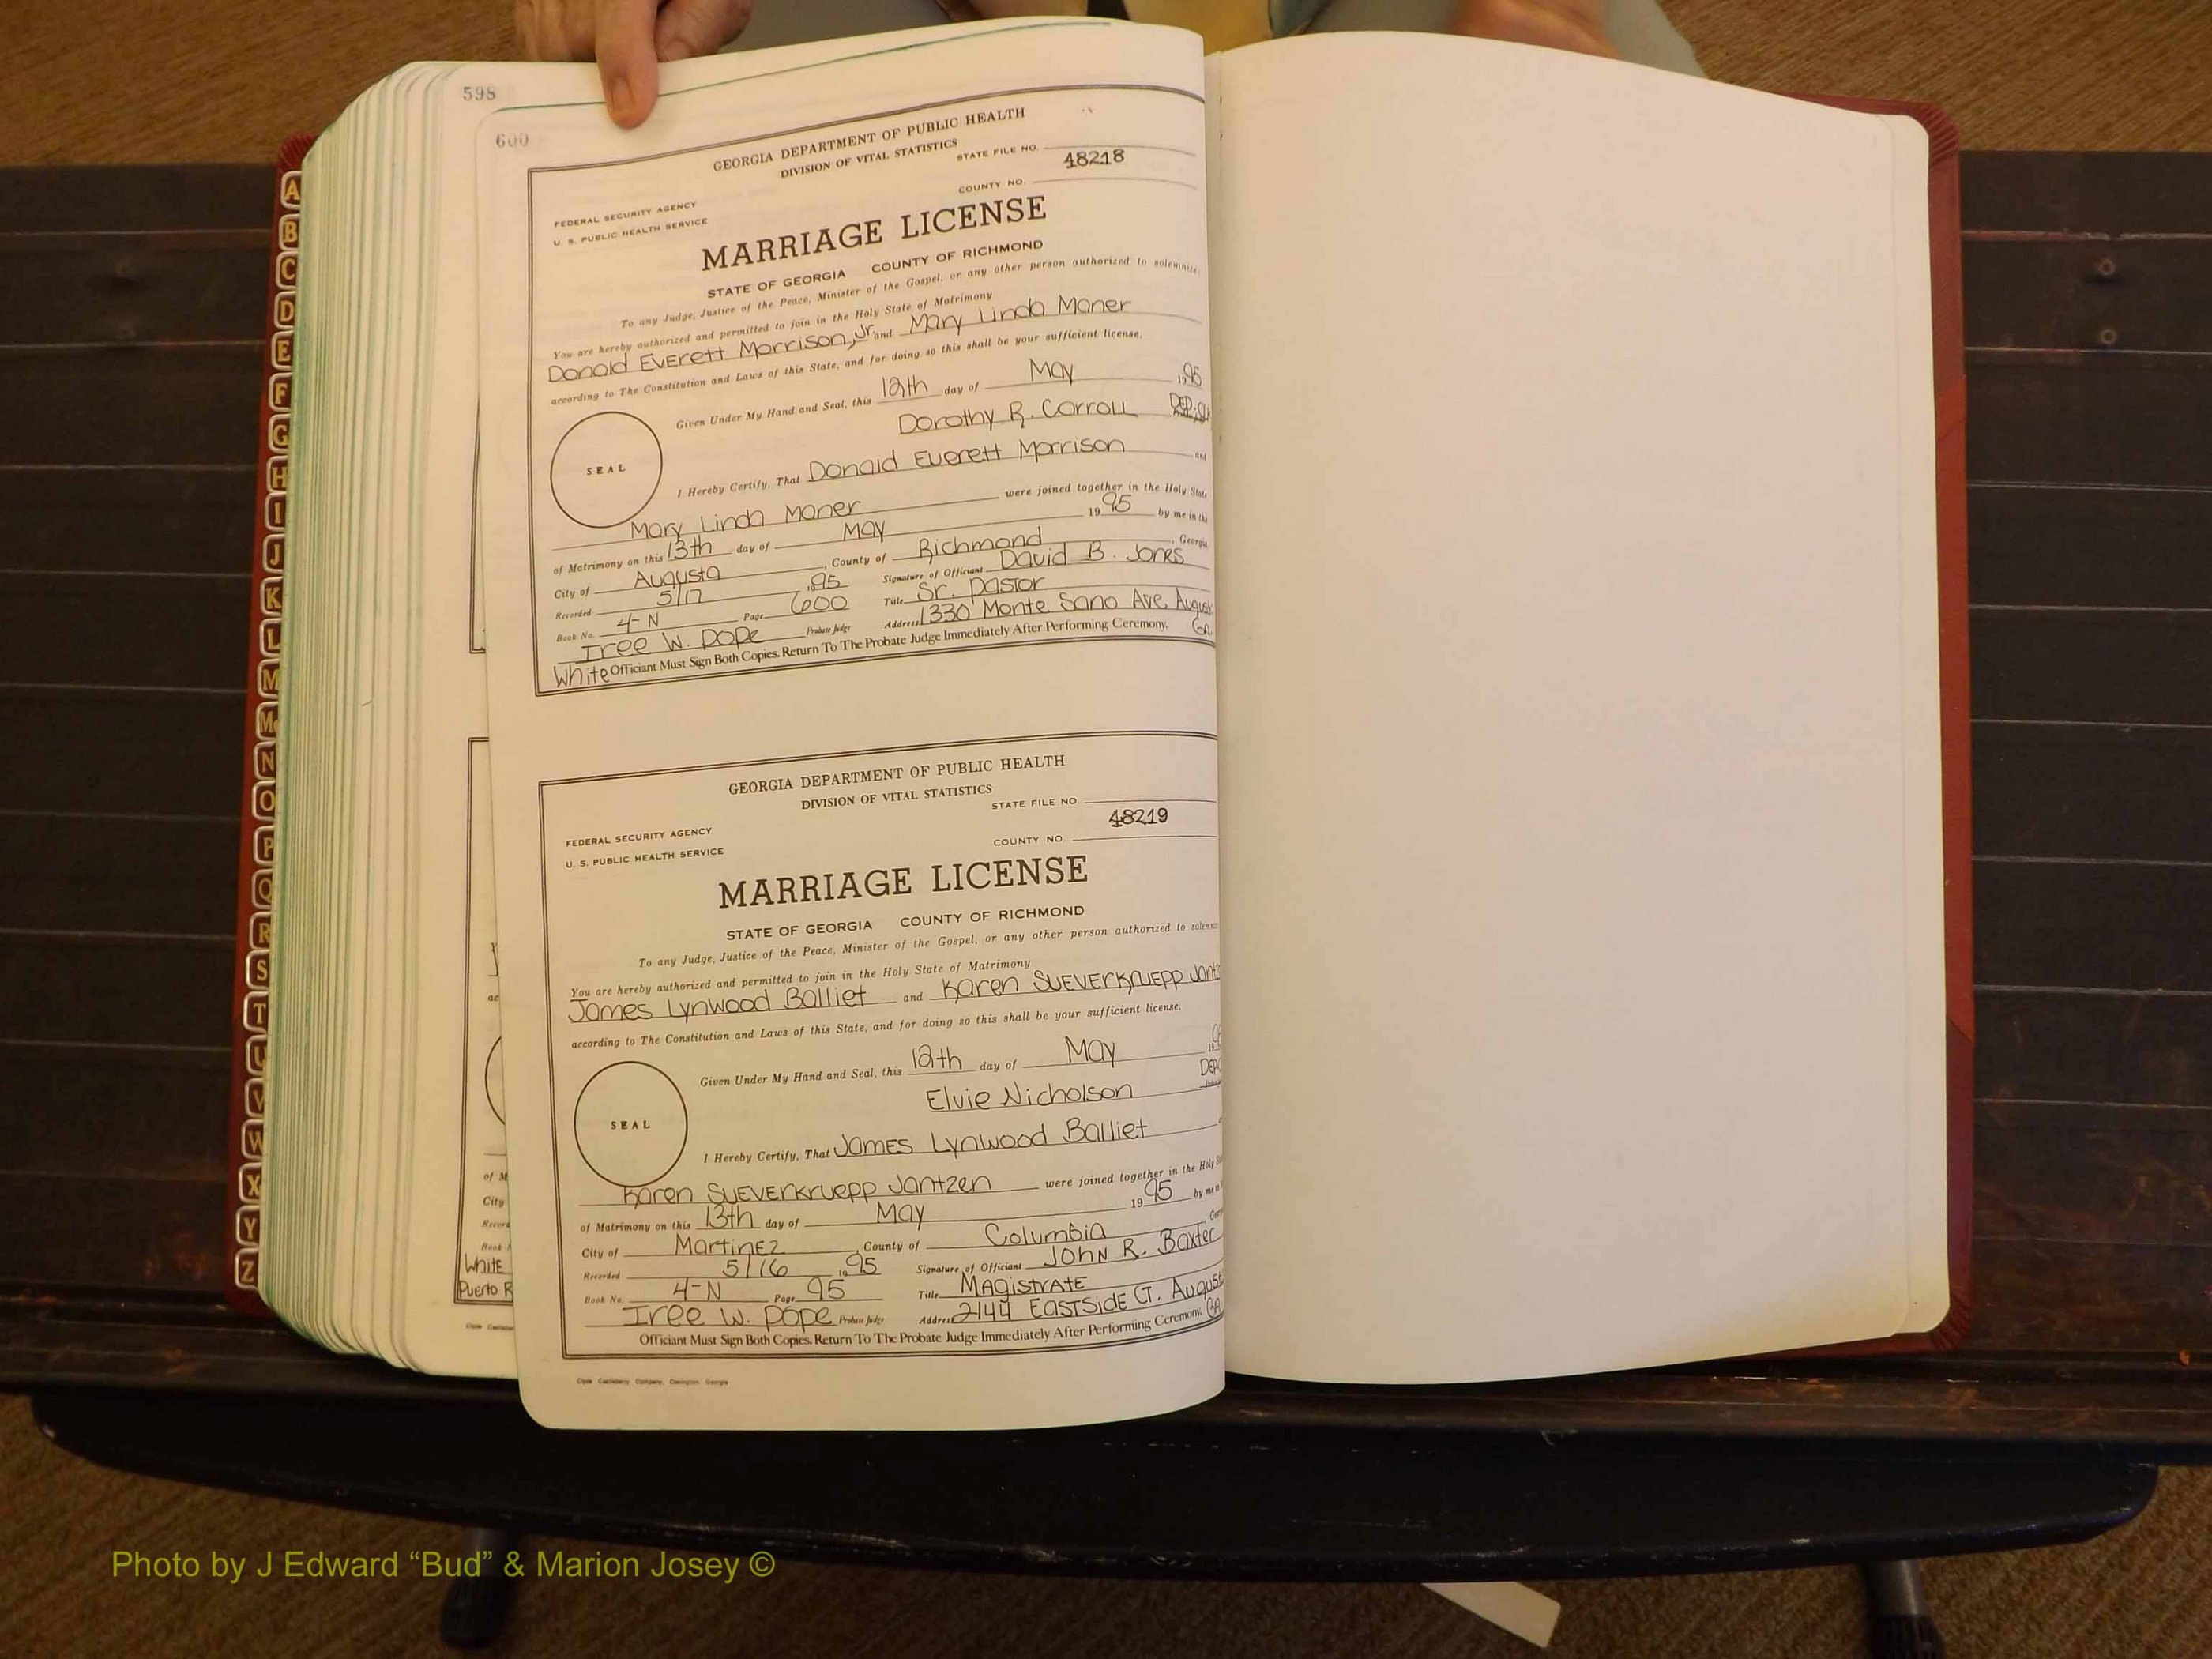 598
600
GEORGIA DEPARTMENT OF PUBLIC HEALTH
DIVISION OF VITAL STATISTICS
STATE FILE NO.
48218
COUNTY NO.
FEDERAL SECURITY AGENCY
U. S. PUBLIC HEALTH SERVICE
MARRIAGE LICENSE
STATE OF GEORGIA COUNTY OF RICHMOND
To any Judge, Justice of the Peace, Minister of the Gospel, or any other person authorized to solemnize:
You are hereby authorized and permitted to join in the Holy State of Matrimony
Donald Everett Morrison, Jr. and Mary Linda Maner
according to The Constitution and Laws of this State, and for doing so this shall be your sufficient license.
Given Under My Hand and Seal, this 12th day of May 1995
Dorothy R. Carroll
SEAL
I Hereby Certify, That Donald Everett Morrison and
Mary Linda Maner were joined together in the Holy State
of Matrimony on this 13th day of May 1995 by me in the
City of Augusta, County of Richmond, Georgia
Recorded 5/17 1995 Signature of Officiant David B. Jones
Book No. 4-N Page 600 Title Sr. Pastor
Iree W. Pope Probate Judge Address 1330 Monte Sano Ave, August
GA.
White Officiant Must Sign Both Copies. Return To The Probate Judge Immediately After Performing Ceremony.
GEORGIA DEPARTMENT OF PUBLIC HEALTH
DIVISION OF VITAL STATISTICS
STATE FILE NO.
48219
COUNTY NO.
FEDERAL SECURITY AGENCY
U. S. PUBLIC HEALTH SERVICE
MARRIAGE LICENSE
STATE OF GEORGIA COUNTY OF RICHMOND
To any Judge, Justice of the Peace, Minister of the Gospel, or any other person authorized to
You are hereby authorized and permitted to join in the Holy State of Matrimony
James Lynwood Balliet and Karen Sueverkruepp
according to The Constitution and Laws of this State, and for doing so this shall be your sufficient license.
Given Under My Hand and Seal, this 12th day of May
Elvie Nicholson
SEAL
I Hereby Certify, That James Lynwood Balliet
Karen Sueverkruepp Jantzen were joined together in the Holy
of Matrimony on this 13th day of May 1995 by me
City of Martinez, County of Columbia
Recorded 5/16 1995 Signature of Officiant John R. Baxter
Book No. 4-N Page 95 Title Magistrate
Iree W. Pope Probate Judge Address 2144 Eastside Ct. August
GA
Officiant Must Sign Both Copies. Return To The Probate Judge Immediately After Performing Ceremony.
Clyde Castleberry Company, Covington, Georgia
of M
City
Record
Book
White
Puerto R
A
B
C
D
E
F
G
H
I
J
K
L
M
Mc
N
O
P
Q
R
S
T
U
V
W
X
Y
Z
Photo by J Edward “Bud” & Marion Josey ©